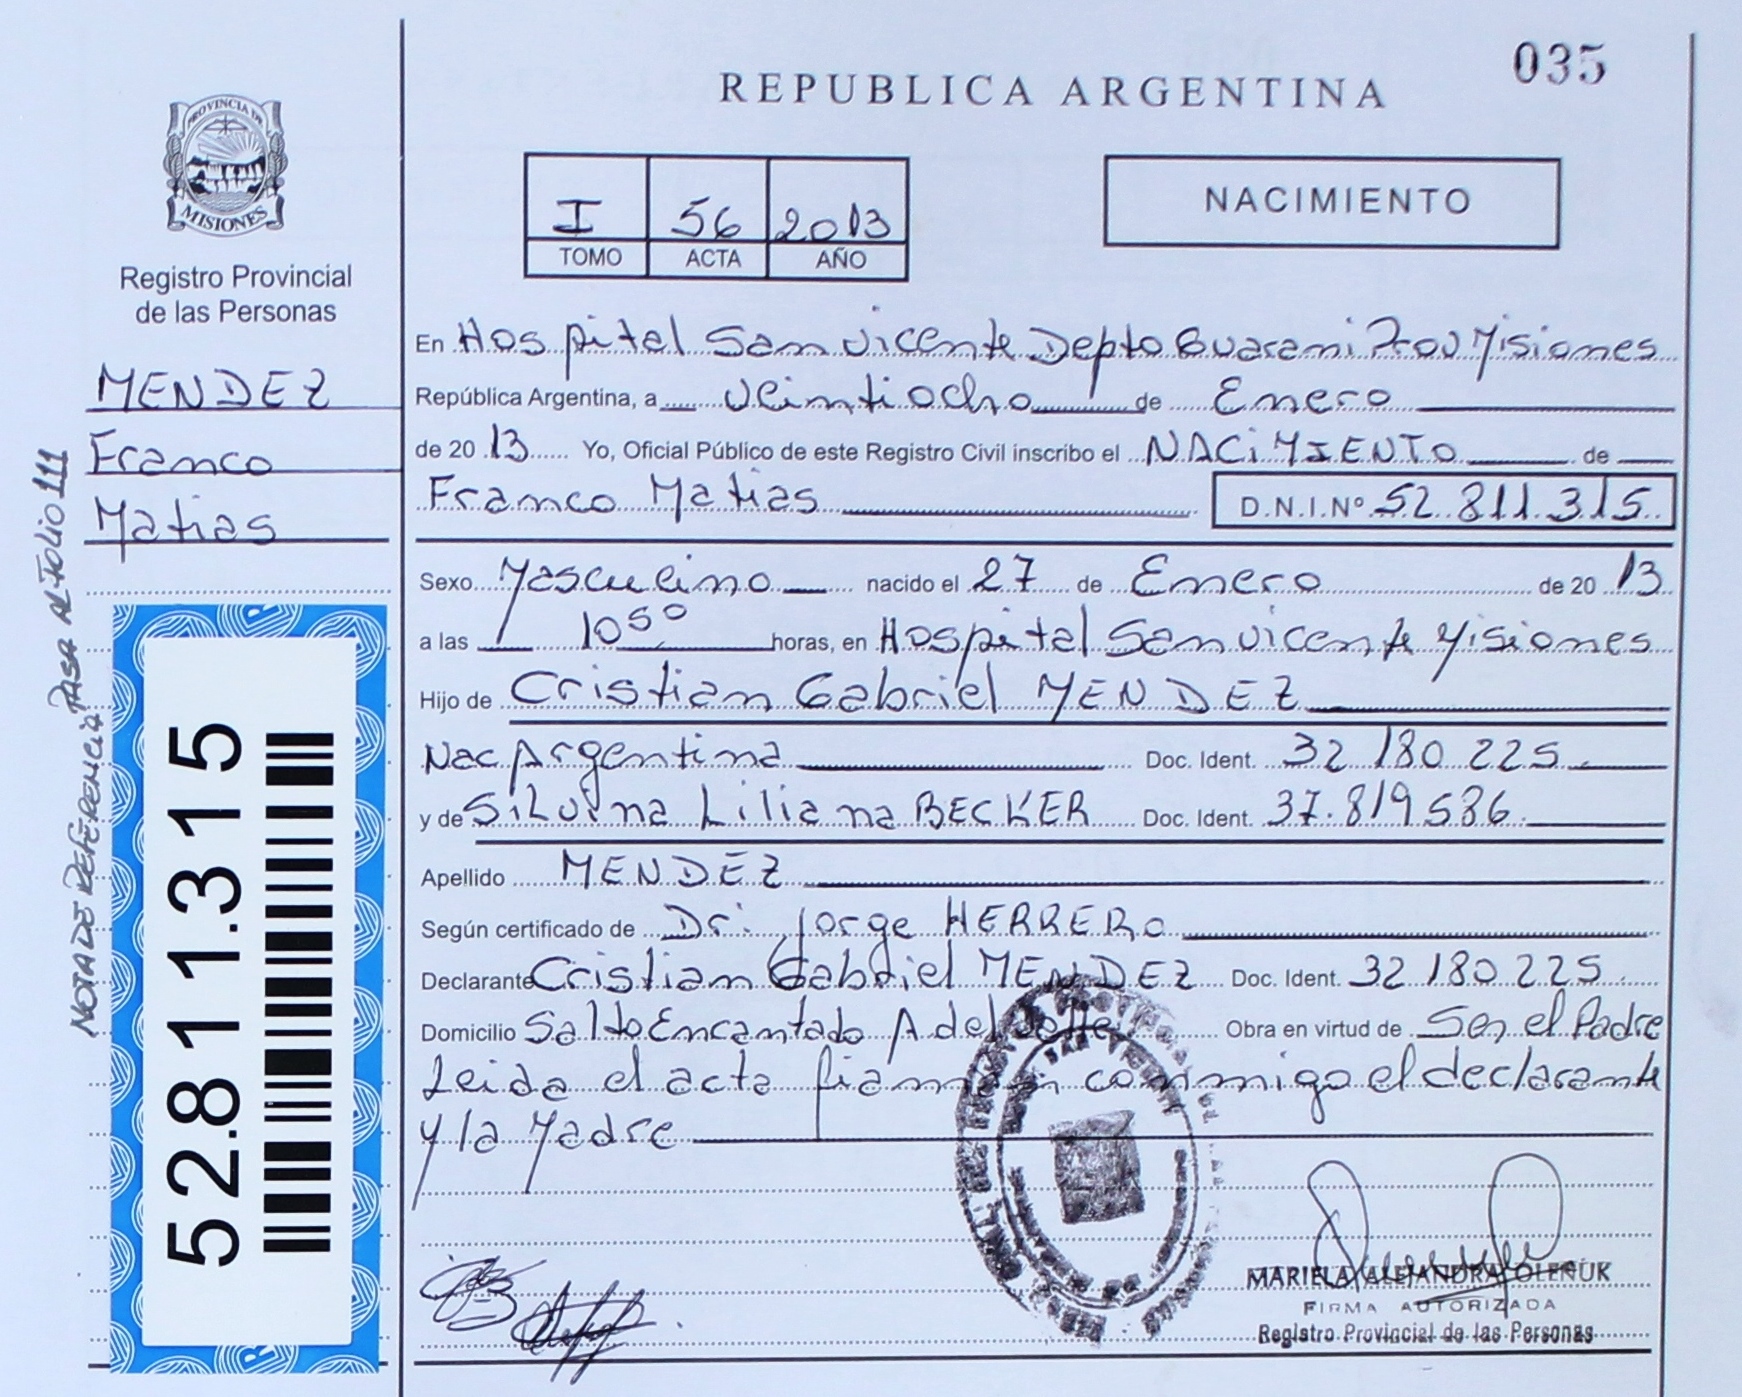 035
REPUBLICA ARGENTINA
PROVINCIA DE
MISIONES
Registro Provincial
de las Personas
MENDEZ
Franco
Matias
NOTA DE REFERENCIA PASA AL FOLIO 111
52.811.315
I 56 2013
TOMO ACTA AÑO
NACIMIENTO
En Hospital San Vicente Depto Guarani Prov Misiones
República Argentina, a veintiocho de Enero
de 20 13 Yo, Oficial Público de este Registro Civil inscribo el NACIMIENTO de
Franco Matias D.N.I.Nº 52.811.315
Sexo Masculino nacido el 27 de Enero de 20 13
a las 10 50 horas, en Hospital San Vicente Misiones
Hijo de Cristian Gabriel MENDEZ
Nac Argentina Doc. Ident. 32 180 225
y de Silvina Liliana BECKER Doc. Ident. 37.819586
Apellido MENDEZ
Según certificado de Dr. Jorge HERRERO
Declarante Cristian Gabriel MENDEZ Doc. Ident. 32 180 225
Domicilio Salto Encantado A del Valle Obra en virtud de Ser el Padre
Leida el acta conmigo el declarante
y la Madre
MARIELA ALEJANDRA OLENUK
FIRMA AUTORIZADA
Registro Provincial de las Personas